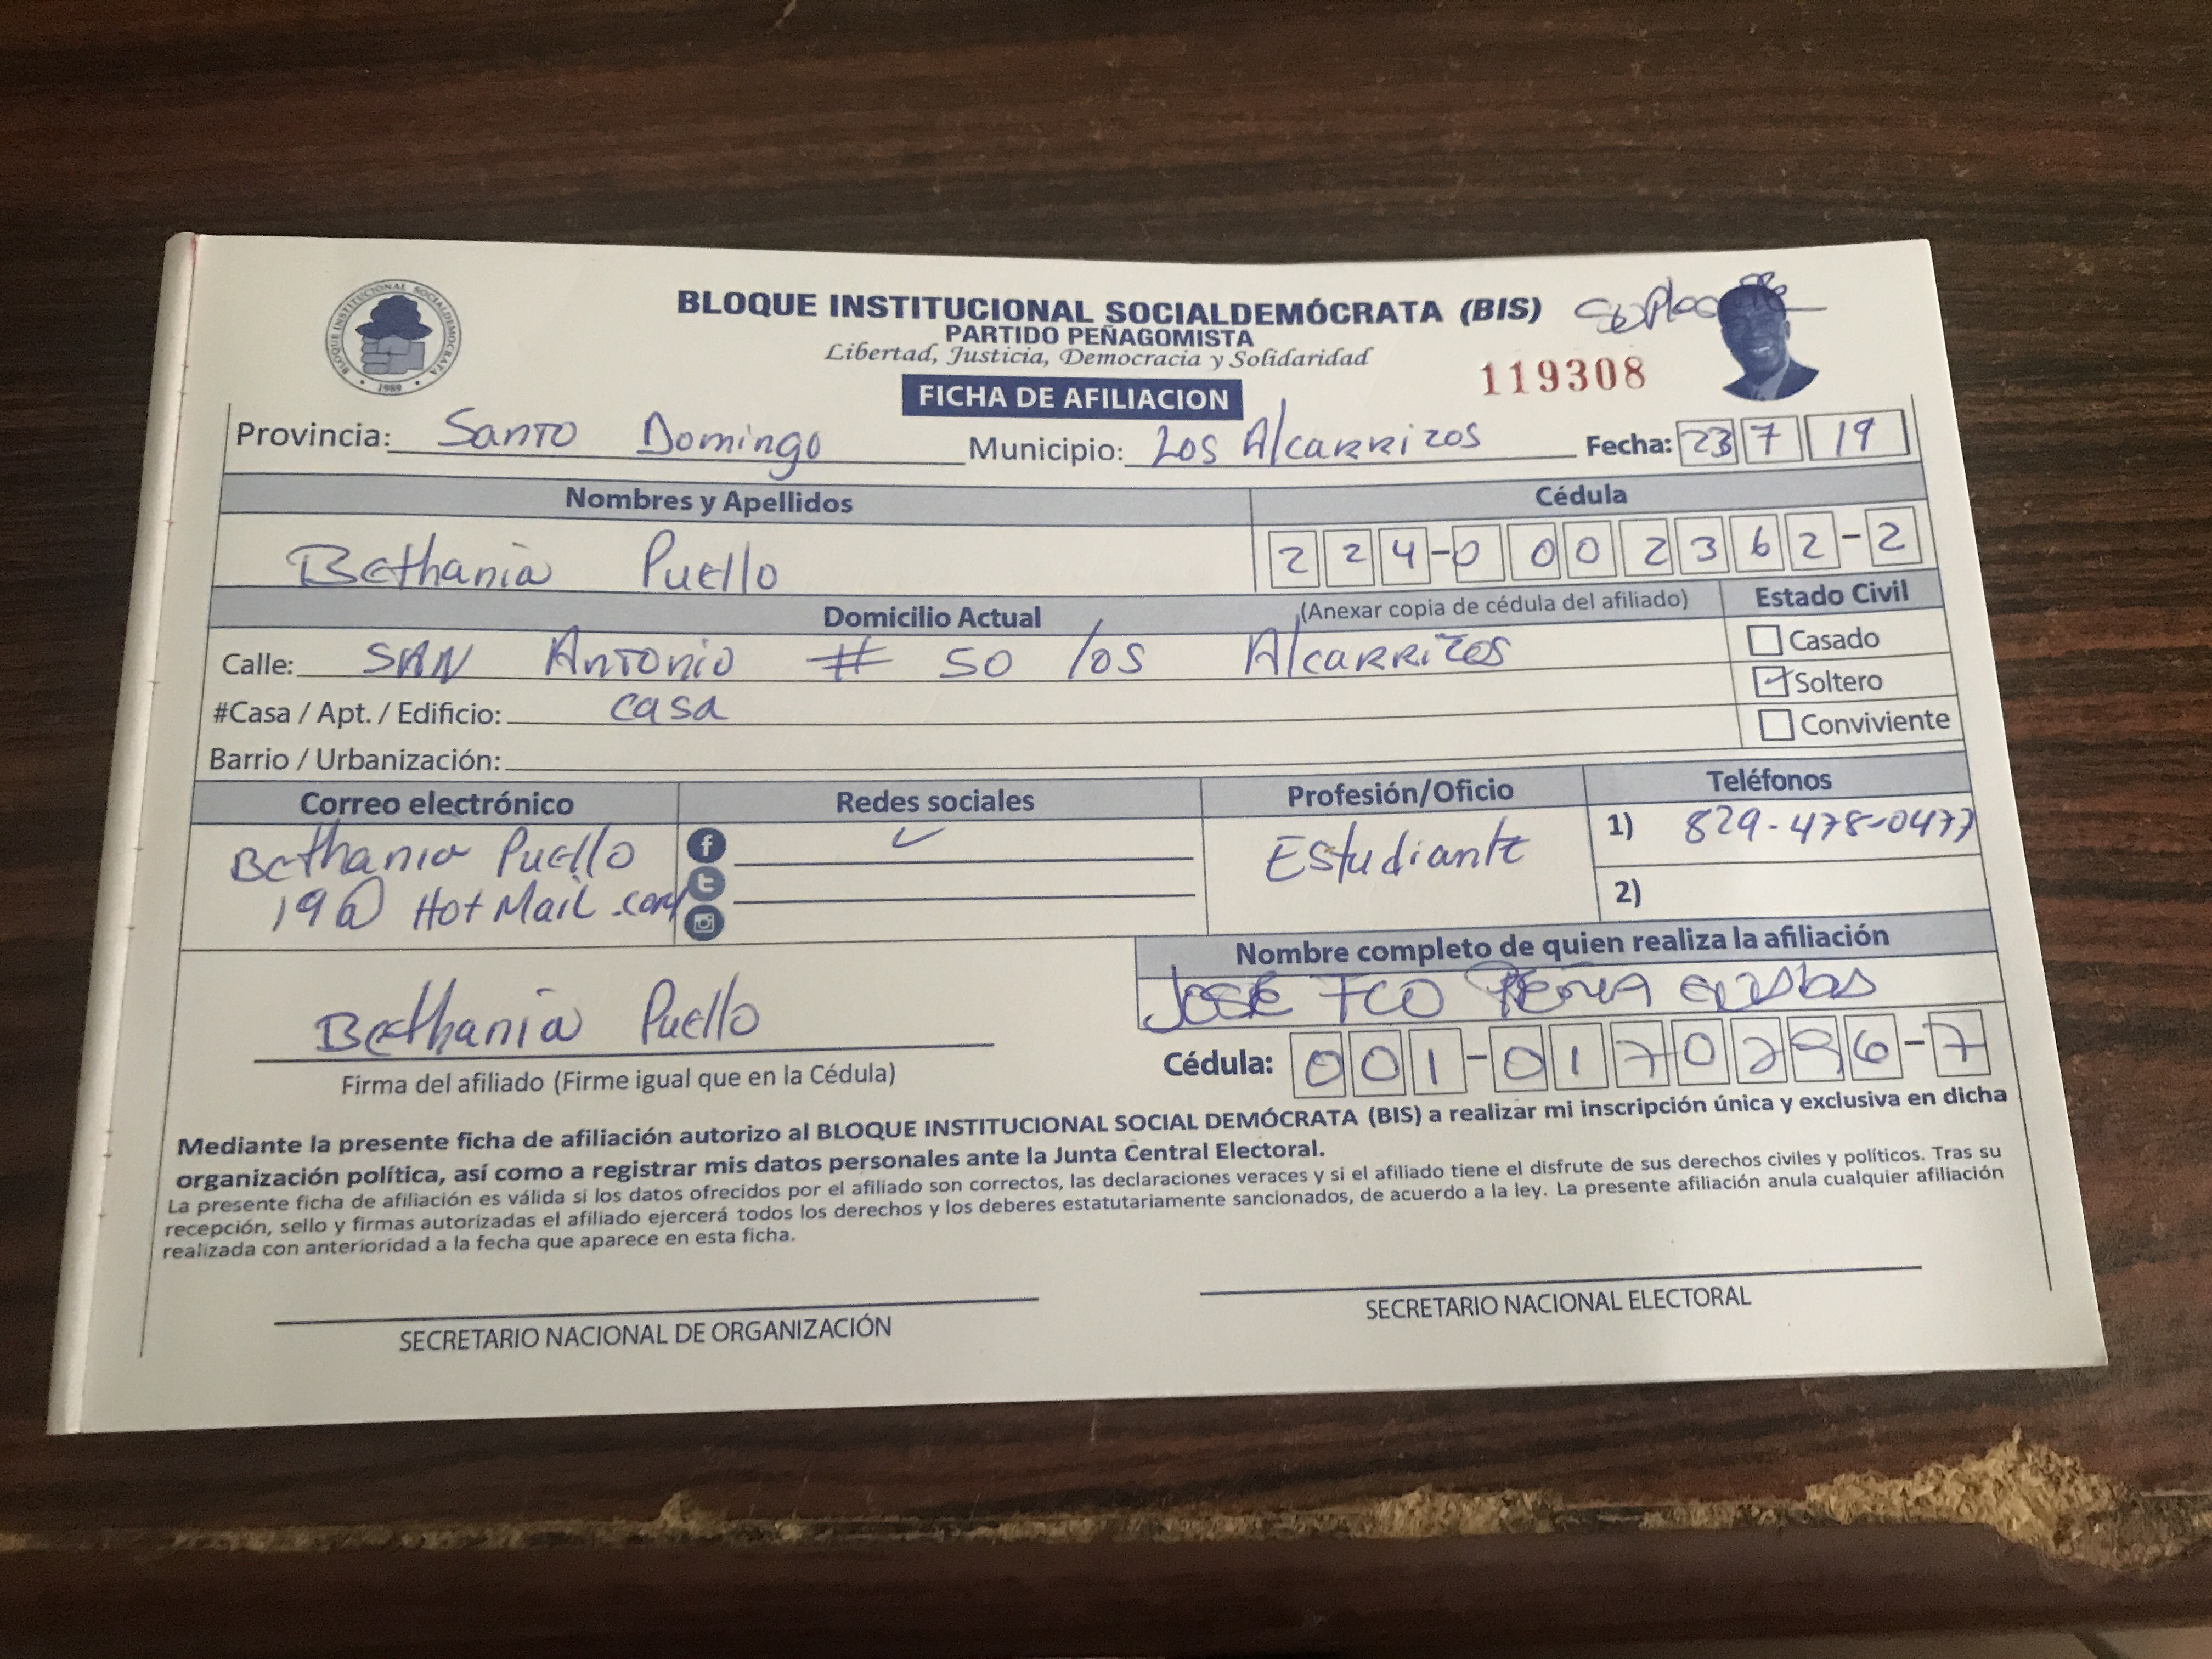 BLOQUE INSTITUCIONAL SOCIALDEMÓCRATA (BIS)
PARTIDO PEÑAGOMISTA
Libertad, Justicia, Democracia y Solidaridad
BLOQUE INSTITUCIONAL SOCIALDEMOCRATA
1989
119308
FICHA DE AFILIACION
Provincia: Santo Domingo Municipio: Los Alcarrizos Fecha: 23 7 19
Nombres y Apellidos Cédula
Bethania Puello 224-0002362-2
Domicilio Actual (Anexar copia de cédula del afiliado) Estado Civil
Calle: SAN Antonio # 50 los Alcarrizos Casado
#Casa / Apt. / Edificio: casa Soltero
Barrio / Urbanización: Conviviente
Correo electrónico Redes sociales Profesión/Oficio Teléfonos
Bethania Puello Estudiante 1) 829-478-0477
19@HotMail.com 2)
Nombre completo de quien realiza la afiliación
JOSE FCO PEÑA
Bethania Puello
Cédula: 001-0170296-7
Firma del afiliado (Firme igual que en la Cédula)
Mediante la presente ficha de afiliación autorizo al BLOQUE INSTITUCIONAL SOCIAL DEMÓCRATA (BIS) a realizar mi inscripción única y exclusiva en dicha
organización política, así como a registrar mis datos personales ante la Junta Central Electoral.
La presente ficha de afiliación es válida si los datos ofrecidos por el afiliado son correctos, las declaraciones veraces y si el afiliado tiene el disfrute de sus derechos civiles y políticos. Tras su
recepción, sello y firmas autorizadas el afiliado ejercerá todos los derechos y los deberes estatutariamente sancionados, de acuerdo a la ley. La presente afiliación anula cualquier afiliación
realizada con anterioridad a la fecha que aparece en esta ficha.
SECRETARIO NACIONAL DE ORGANIZACIÓN SECRETARIO NACIONAL ELECTORAL